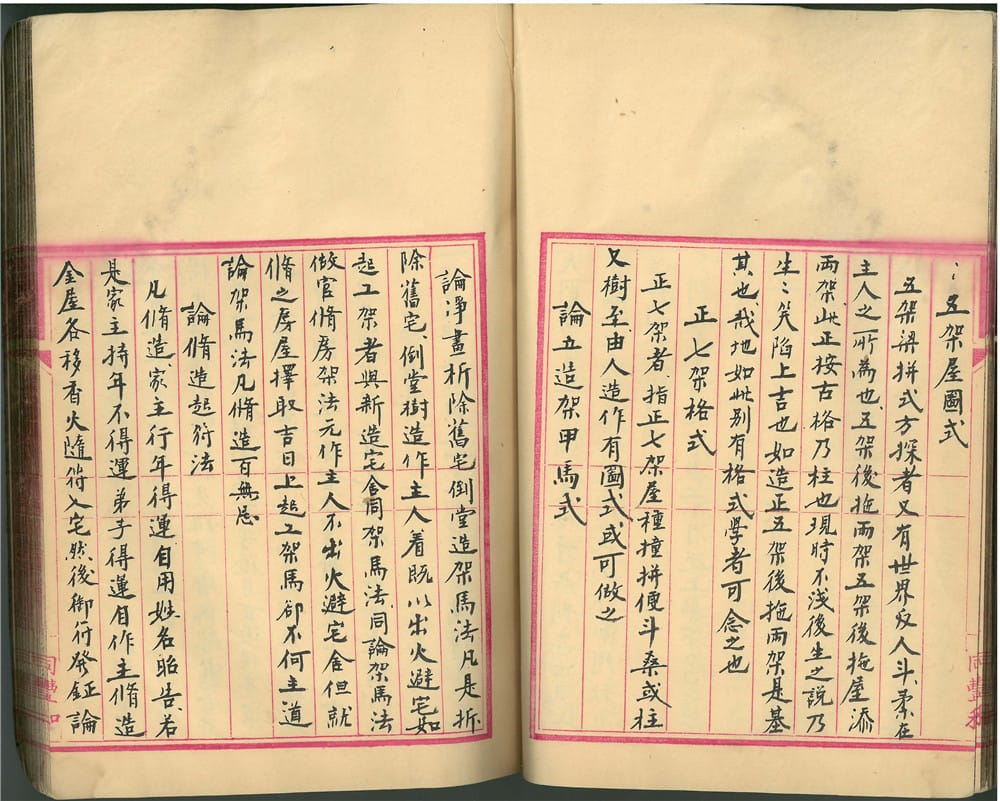 五架屋圖式
五架梁拼式方探者又有世界反人斗桼在
主人之所為也五架後拖兩架五架後拖屋添
兩架此正按古格乃柱也現時不淺後生之說乃
生〻笑陷上吉也如造正五架後拖兩架是基
其也或地如此別有格式學者可念之也
正七架格式
正七架者指正七架屋種撞拼便斗桑或柱
又樹至由人造作有圖式或可做之
論五造架甲馬式
論淨盡析除舊宅倒堂造架馬法凡是折
除舊宅倒堂樹造作主人着既以出火避宅如
起工架者與新造宅舍同架馬法同論架馬法
做官脩房架法元作主人不出火避宅舍但就
脩之房屋擇取吉日上起工架馬卻不何主道
論架馬法凡脩造百無忌
論脩造起符法
凡脩造家主行年得運自用姓名昭告若
是家主持年不得運弟子得運自作主脩造
金屋各移香火隨符入宅然後御符發鉦論
同豐